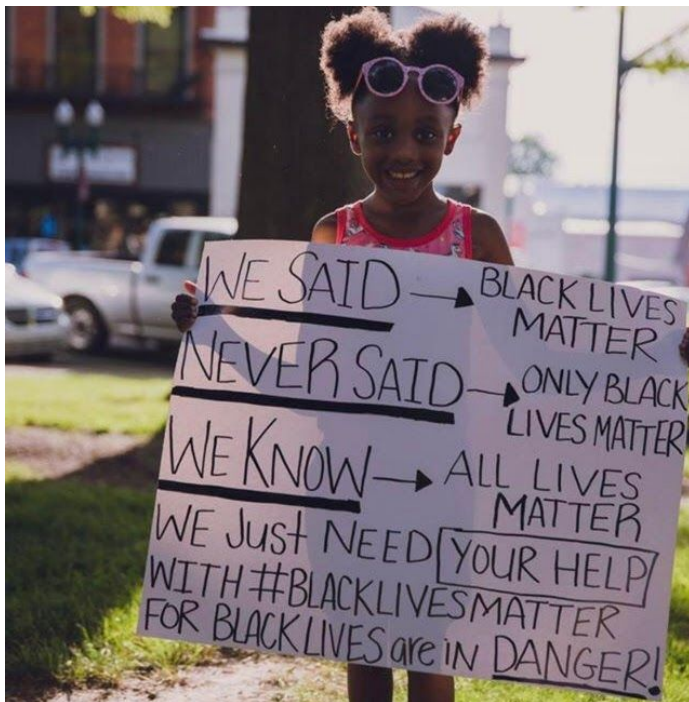 WE SAID → BLACK LIVES
MATTER
NEVER SAID → ONLY BLACK
LIVES MATTER!
WE KNOW → ALL LIVES
MATTER
WE JusT NEED YOUR HELP
WITH #BLACKLIVESMATTER
FOR BLACK LIVES are iN DANGER!